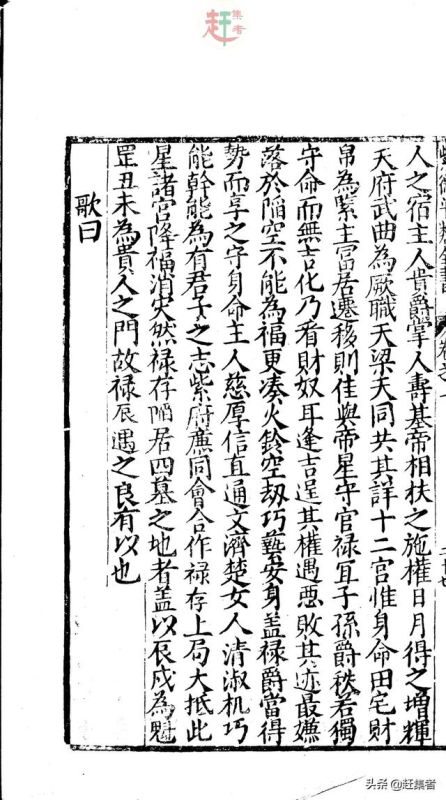 赶集者
人之宿主人贵爵掌人壽基帝相扶之施權日月得之增輝
天府武曲為厥職天梁天同共其詳十二宮惟身命田宅財
帛為緊主富居遷移則佳與帝星守官禄宜子孫爵秩若獨
守命而無吉化乃看財奴耳逢吉逞其權遇惡敗其迹最嫌
落於陥空不能為福更凑火鈴空刼巧藝安身盖禄爵當得
勢而享之守身命主人慈厚信直通文濟楚女人清淑机巧
能幹能為有君子之志紫府廉同會合作禄存上局大抵此
星諸宮降福消灾然禄存陥居四墓之地者盖以辰戌為魁
罡丑未為貴人之門故禄辰遇之良有以也
歌曰
头条 @赶集者